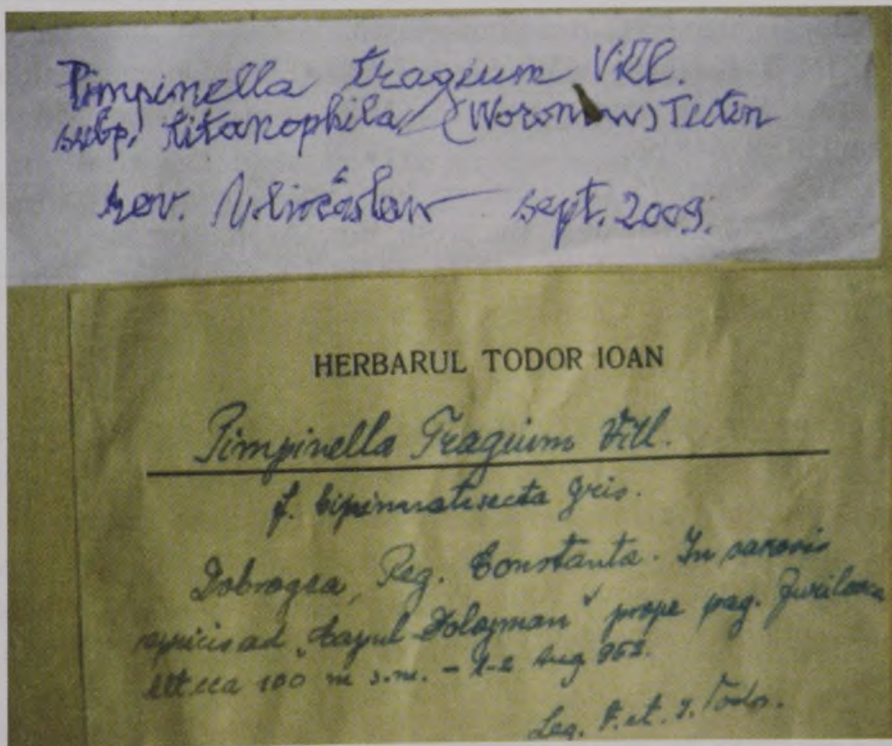 Pimpinella tragium Vill.
subp. titanophila (Woronow) Tutin
rev. sept. 2009.
HERBARUL TODOR IOAN
Pimpinella Tragium Vill.
f. bipinnatisecta Gris.
Dobrogea, Reg. Constanta. In saxosis
apricis ad "Capul Dolojman" prope pag. Jurilovca
Alt. cca 100 m s.m. - 1-2 Aug 952.
Leg. et. I. Todor.